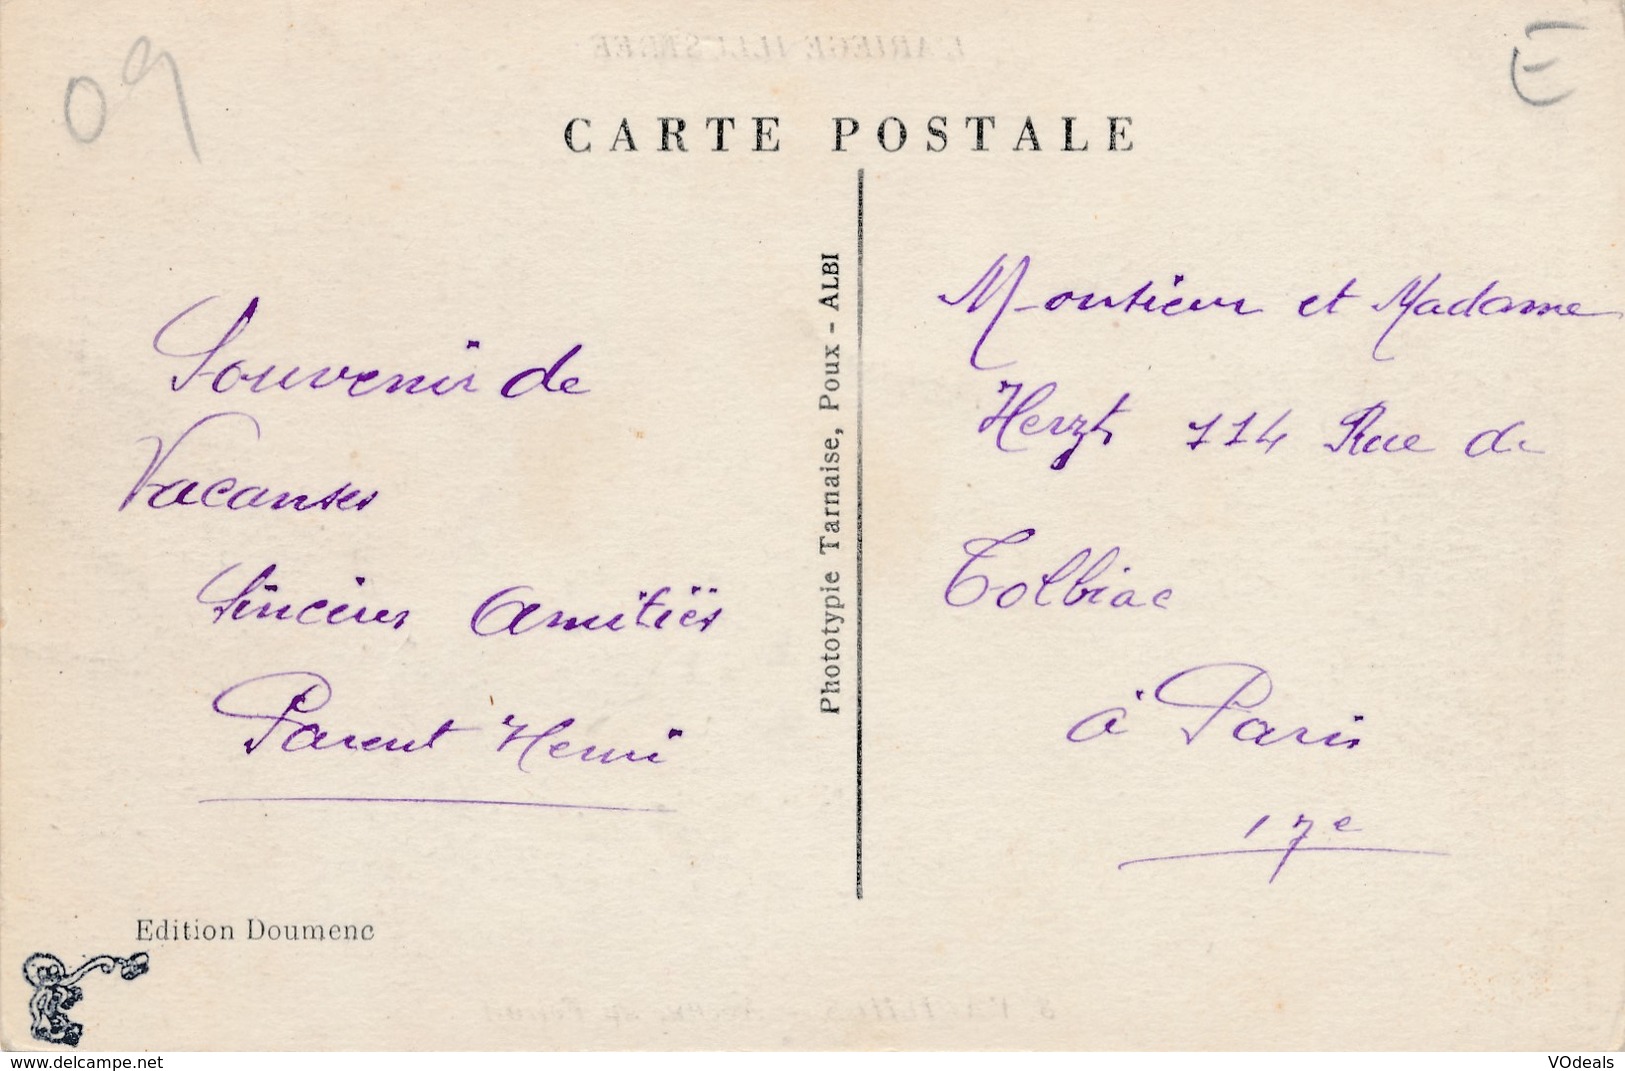 09
E
CARTE POSTALE
Souvenir de
Vacanses
Sincères Amitiés
Parent Henri
Phototypie Tarnaise, Poux - ALBI
Monsieur et Madame
Herzt 114 Rue de
Tolbiac
à Paris
17e
Edition Doumenc
www.delcampe.net
VOdeals